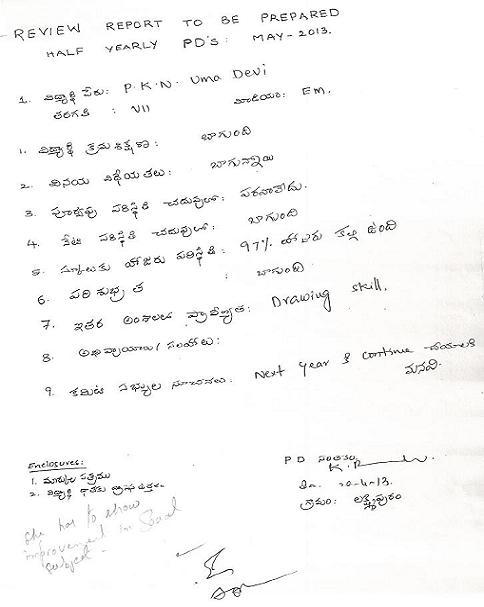 REVIEW REPORT TO BE PREPARED
HALF YEARLY PD's: MAY-2013.
1. విద్యార్థి పేరు: P.K.N. Uma Devi
తరగతి : VII మీడియం: EM.
1. విద్యార్థి క్రమశిక్షణ: బాగుంది
2. వినయ విధేయతలు: బాగున్నాయి
3. పూర్వపు పరిస్థితి చదువులో: పరవాలేదు.
4. నేటి పరిస్థితి చదువులో: బాగుంది
5. స్కూలుకు హాజరు పరిస్థితి: 97% హాజరు కల్గి ఉంది
6. పరిశుభ్రత : బాగుంది
7. ఇతర అంశాలలో ప్రావీణ్యత: Drawing skill.
8. అభిప్రాయాలు/
9. కమిటి సభ్యుల సూచనలు: Next year కి continue చేయాలని
మనవి.
Enclosures:
1. మార్కుల పత్రము
2. విద్యార్థి
PD సంతకం
10-4-13.
గ్రామం: లక్ష్మీపురం
She has to show
improvement in Social
subject.